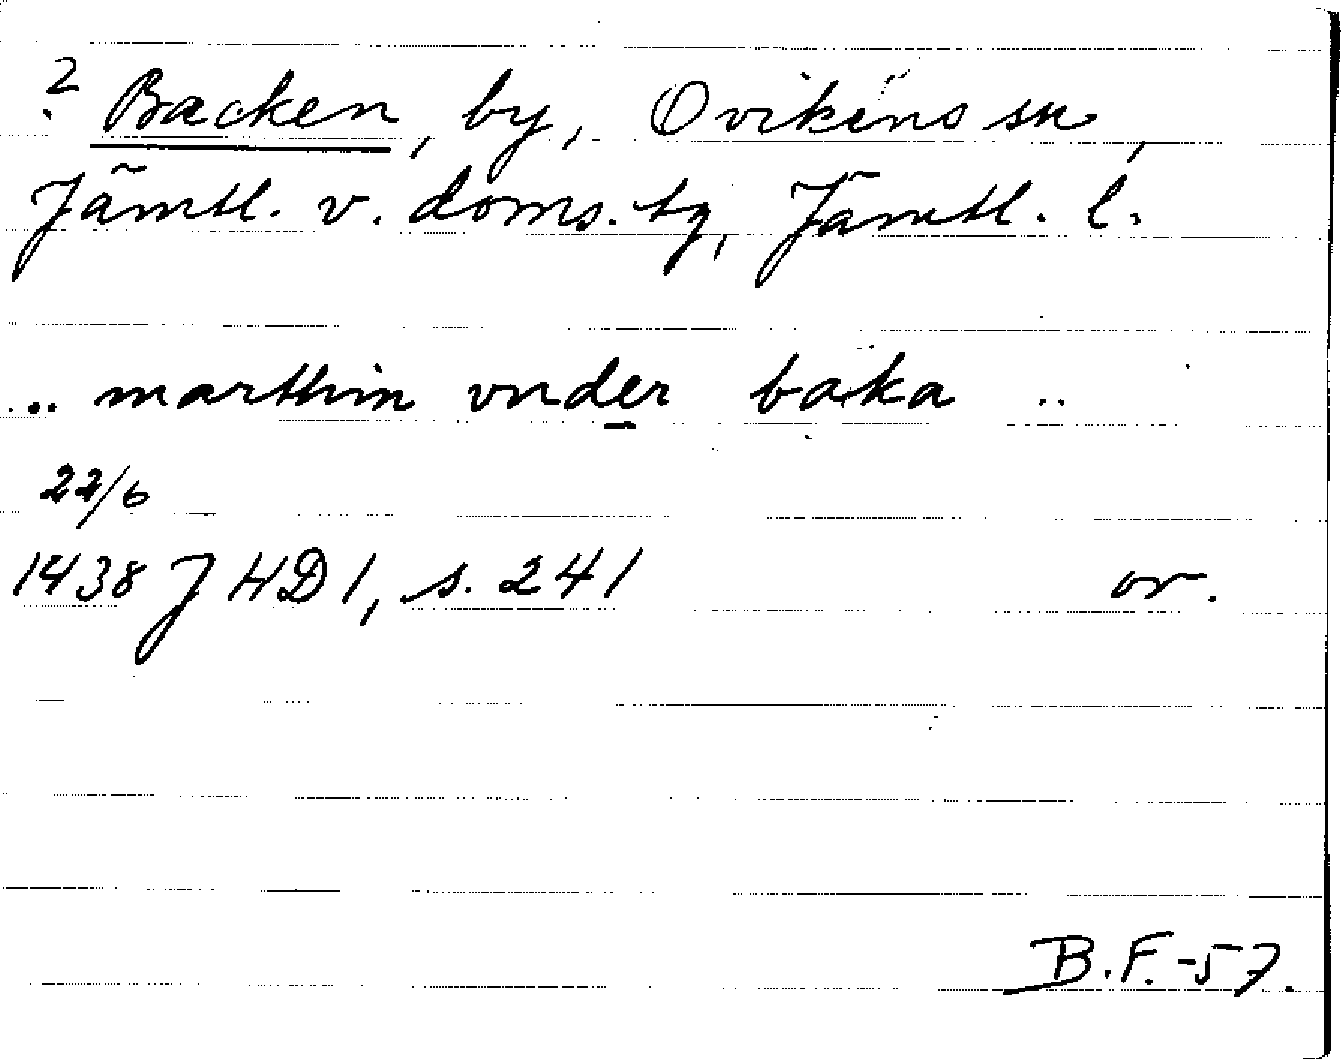 ? Backen, by, Ovikens sn,
Jämtl. v. doms. tg, Jämtl. l.
... marthin vnder baka ..
22/6
1438 JHD 1, s. 241 or.
B.F.-57.